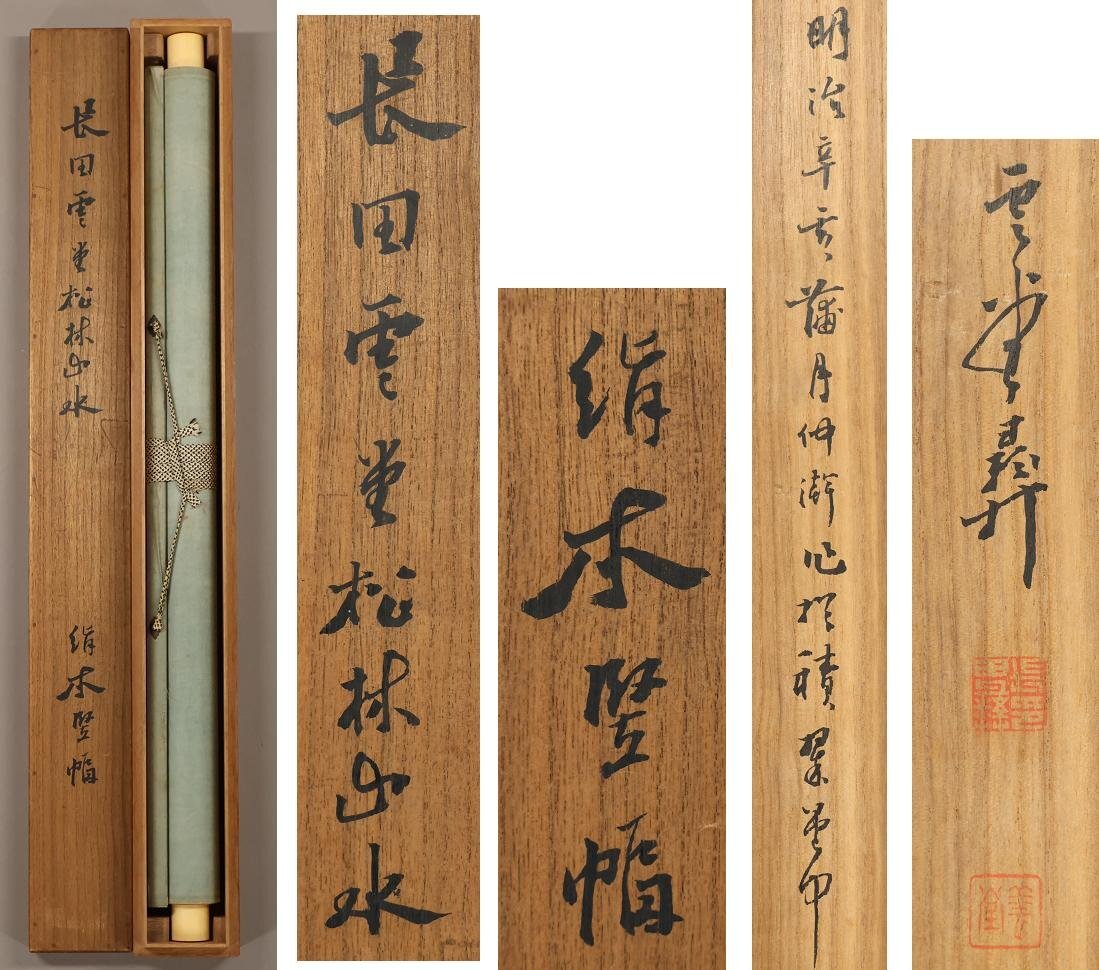 長田雲堂松林山水
絹本竪幅
長田雲堂松林山水
絹本竪幅
明治辛亥蒲月仲澣作於積翠堂中
雲堂彝